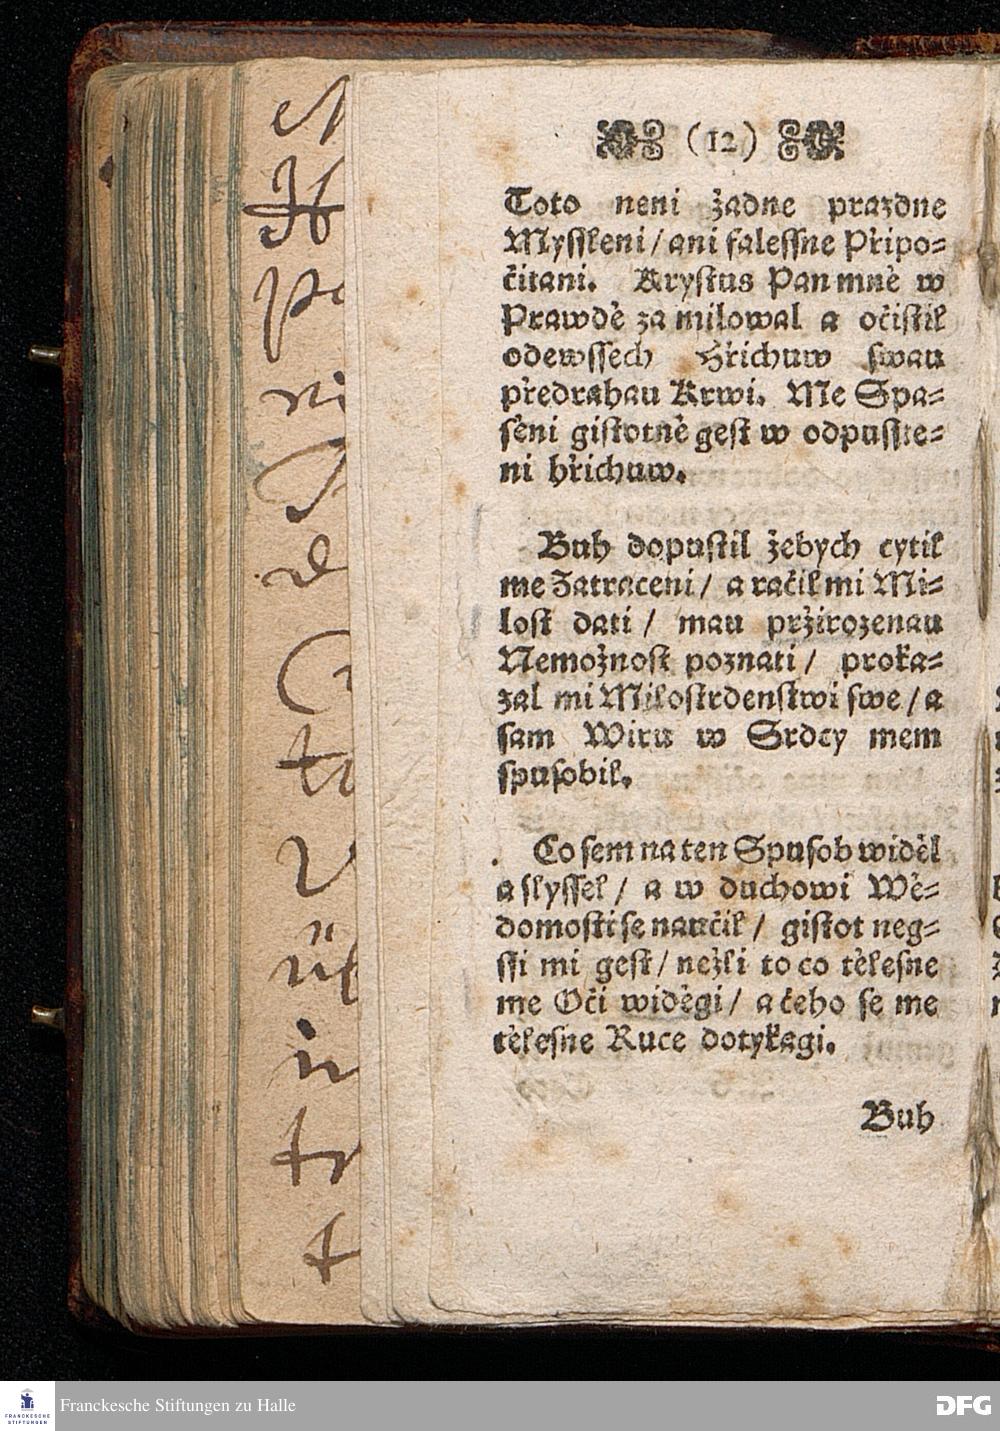 (12)
Toto neni žadne prazdne
Mysſleni / ani faleſſne Připo⸗
čitani. Kryſtus Pan mně w
Prawdě zamilowal a očiſtil
odewſſech Hřichuw ſwau
předrahau Krwi. Me Spa⸗
ſěni giſtotně geſt w odpuſſte⸗
ni hřichuw.
Buh dopuſtil žebych cytil
me Zatraceni / a račil mi Mi⸗
loſt dati / mau pržirozenau
Nemožnoſt poznati / proka⸗
zal mi Miloſrdenſtwi ſwe / a
ſam Wiru w Srdcy mem
ſpuſobil.
Co ſem na ten Spuſob widěl
a ſlyſſel / a w duchowi Wě⸗
domoſti ſe naučil / giſtot neg⸗
ſſi mi geſt / nežli to co tělеſne
me Oči widěgi / a čeho ſe me
tělеſne Ruce dotykagi.
Buh
Franckesche Stiftungen zu Halle
DFG
FRANCKESCHE
STIFTUNGEN